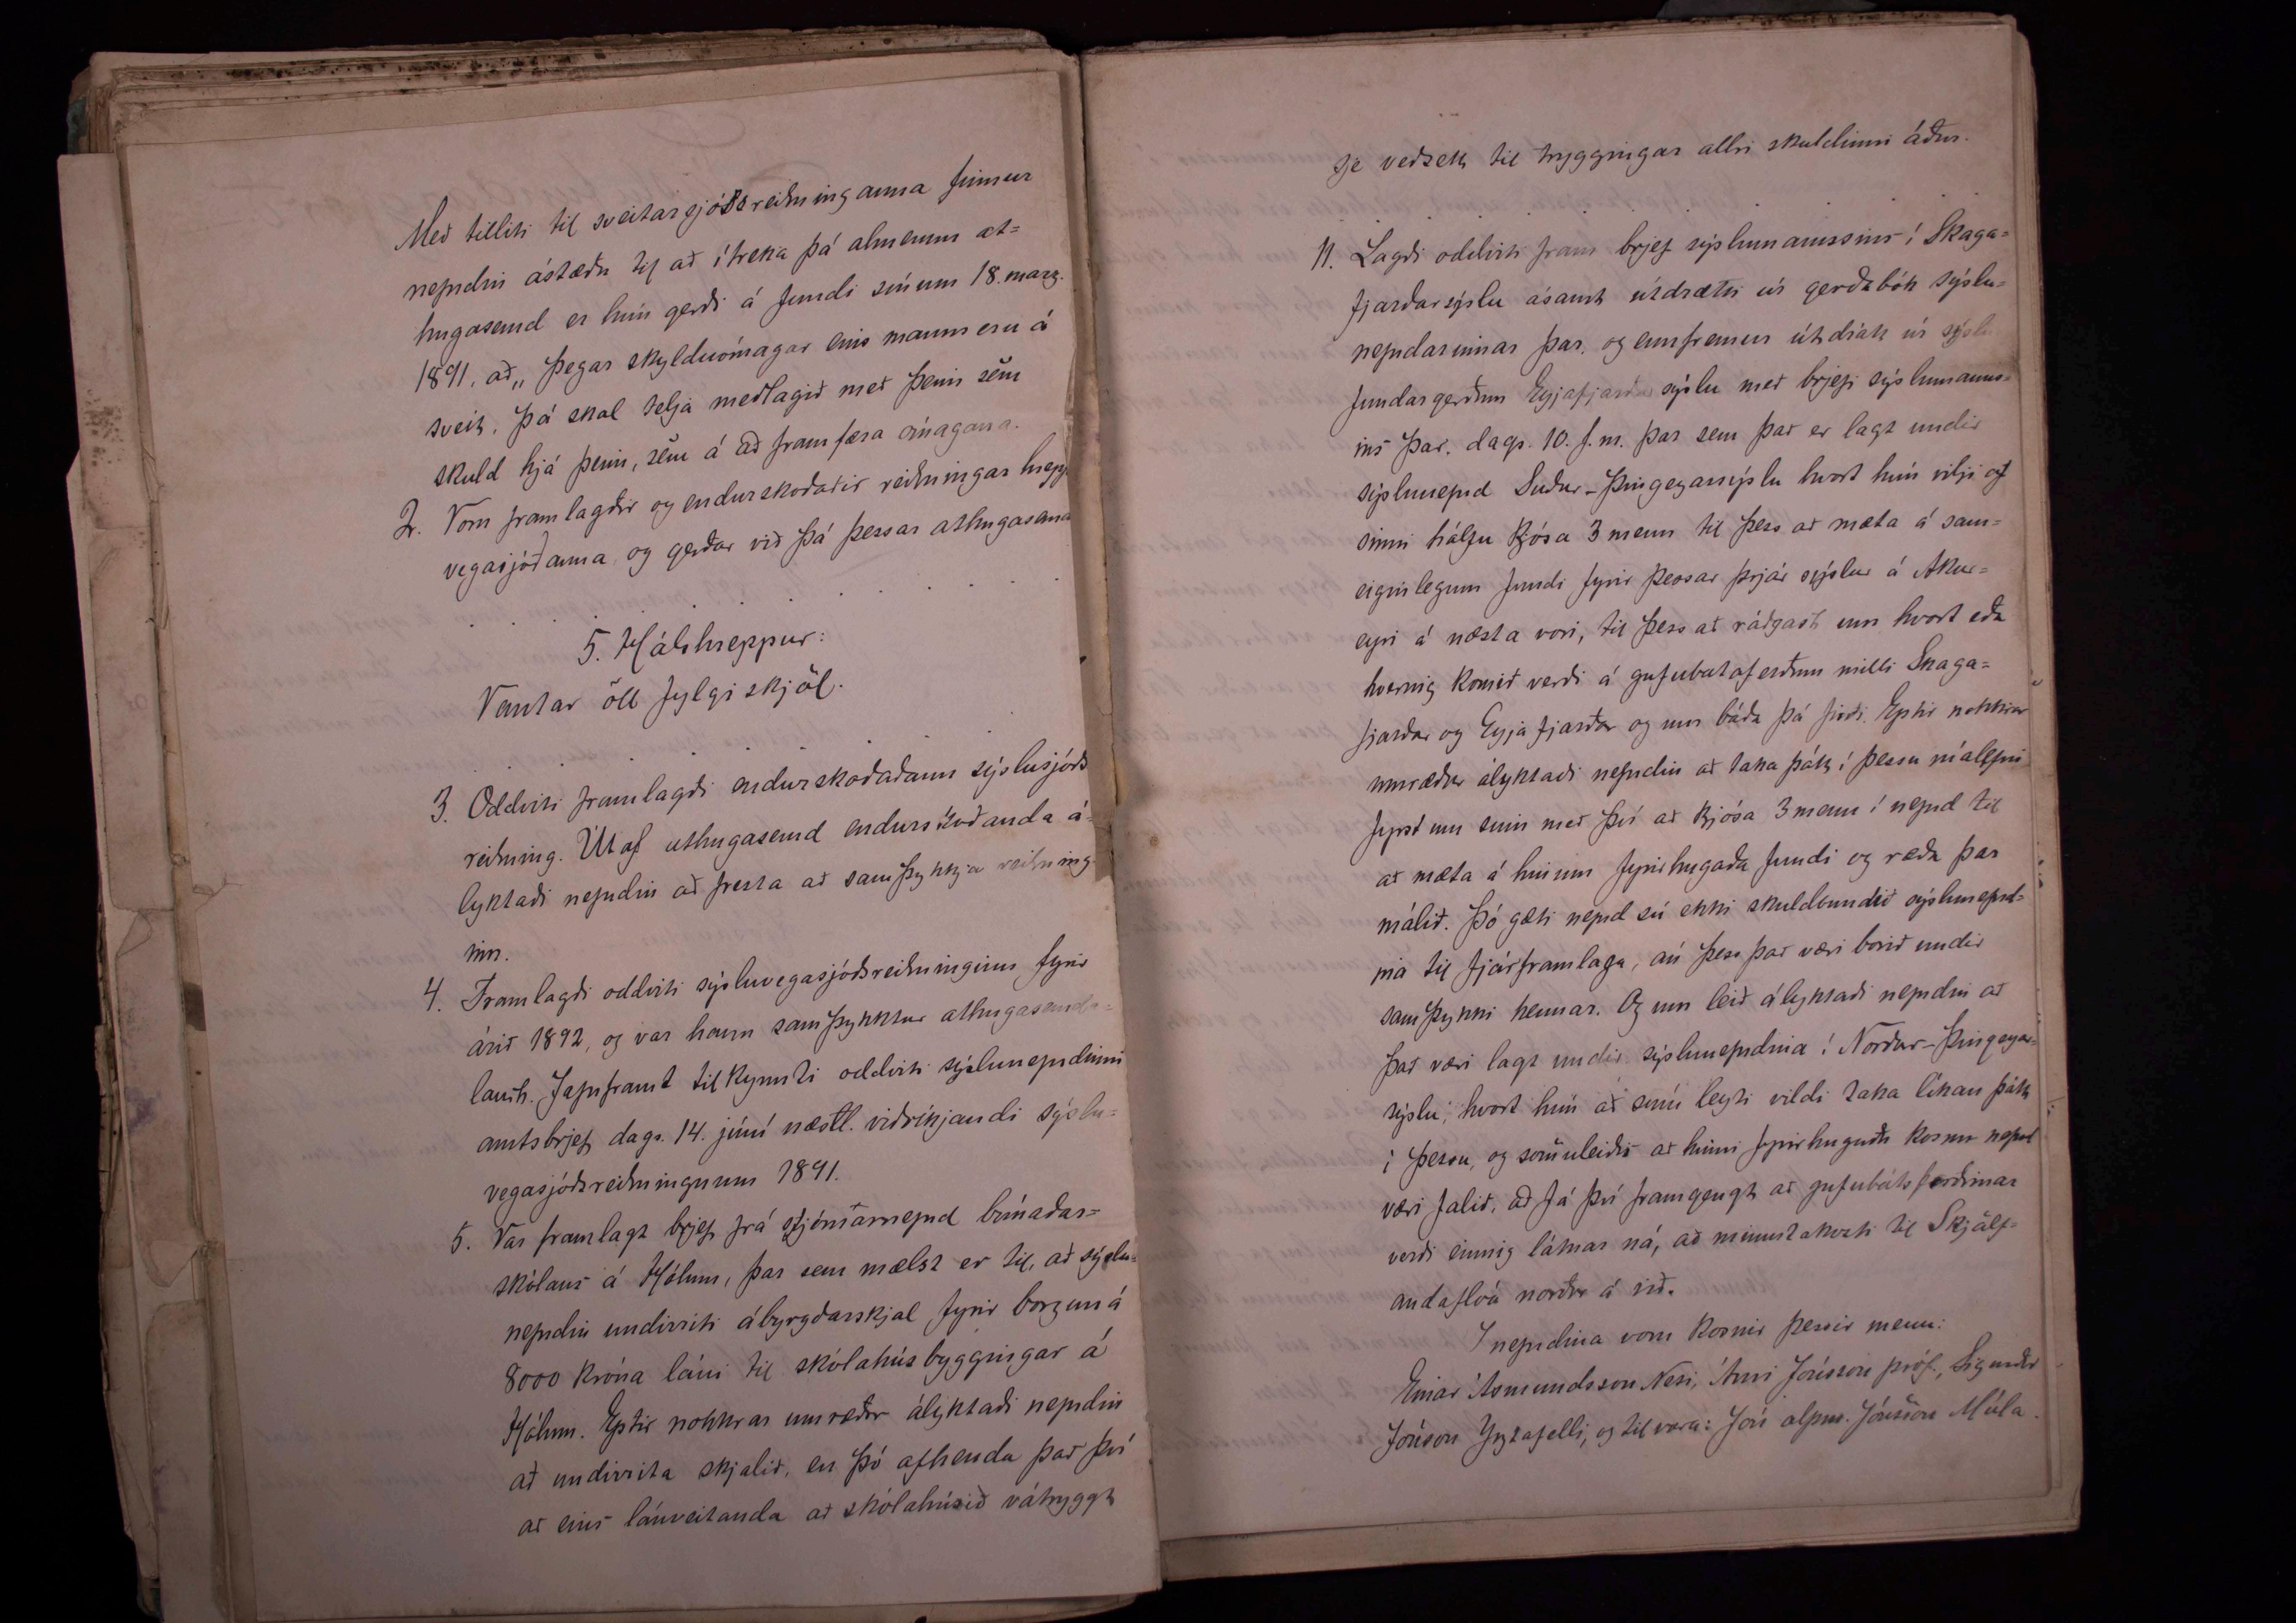 Með tilliti til sveitarsjóðsreikninganna finnur
nefndin ástæðu til að ítreka þá almennu at=
hugasemd er hún gerði á fundi sínum 18. marz.
1891, að „þegar skylduómagar eins manns eru á
sveit, þá skal telja meðlagið með þeim sem
skuld hjá þeim, sem á að framfæra ómagana.
2. Voru framlagðir og endurskoðaðir reikningar hrepp
vegasjóðanna og gerðar við þá þessar athugasemd
5. Hálshreppur:
Vantar öll fylgiskjöl.
3. Oddviti framlagði endurskoðaðann sýslusjóðs
reikning. Útaf athugasemd endurskoðanda á=
lyktaði nefndin að fresta að samþykkja reikning=
inn.
4. Framlagði oddviti sýsluvegasjóðsreikninginn fyrir
árið 1892, og var hann samþykktur athugasemda=
laust. Jafnframt tilkynnti oddviti sýslunefndinni
amtsbrjef dags. 14. júní næstl. viðvíkjandi sýslu=
vegasjóðsreikningnum 1891.
5. Var framlagt brjef frá stjórnarnefnd búnaðar=
skólans á Hólum, þar sem mælst er til, að sýslu=
nefndin undirriti ábyrgðarskjal fyrir borgun á
8000 króna láni til skólahúsbyggingar á
Hólum. Eptir nokkrar umræður ályktaði nefndin
að undirrita skjalið, en þó afhenda það því
að eins lánveitanda að skólahúsið vátryggt
sje veðsett til tryggingar allri skuldinni áður.
11. Lagði oddviti fram brjef sýslumannsins í Skaga=
fjarðarsýslu ásamt útdrætti úr gerðabók sýslu=
nefndarinnar þar, og ennfremur útdrátt úr sýslu
fundargerðum Eyjafjarðarsýslu með brjefi sýslumanns=
ins þar, dags. 10. f.m. þar sem það er lagt undir
sýslunefnd Suður-Þingeyarsýslu hvort hún vilji af
sinni hálfu kjósa 3 menn til þess að mæta á sam=
eiginlegum fundi fyrir þessar þrjár sýslur á Akur=
eyri á næsta vori, til þess að ráðgast um hvort eða
hvernig komið verði á gufubátaferðum milli Skaga=
fjarðar og Eyjafjarðar og um báða þá firði. Eptir nokkrar
umræður ályktaði nefndin að taka þátt í þessu málefni
fyrst um sinn með því að kjósa 3 menn í nefnd til
að mæta á hinum fyrirhugaða fundi og ræða þar
málið. Þó gæti nefnd sú ekki skuldbundið sýslunefnd=
ina til fjárframlaga, án þess það væri borið undir
samþykki hennar. Og um leið ályktaði nefndin að
það væri lagt undir sýslunefndina í Norður-Þingeyar=
sýslu, hvort hún að sínu leyti vildi taka líkan þátt
í þessu, og sömuleiðis að hinni fyrirhuguðu kosnu nefnd
væri falið, að fá því framgengt að gufubátsferðirnar
verði einnig látnar ná, að minnsta kosti til Skjálf=
andaflóa norður á við.
Í nefndina voru kosnir þessir menn:
Einar Ásmundsson Nesi, Árni Jónsson próf., Sigurður
Jónsson Yztafelli, og til vara: Jón alþm. Jónsson Múla.